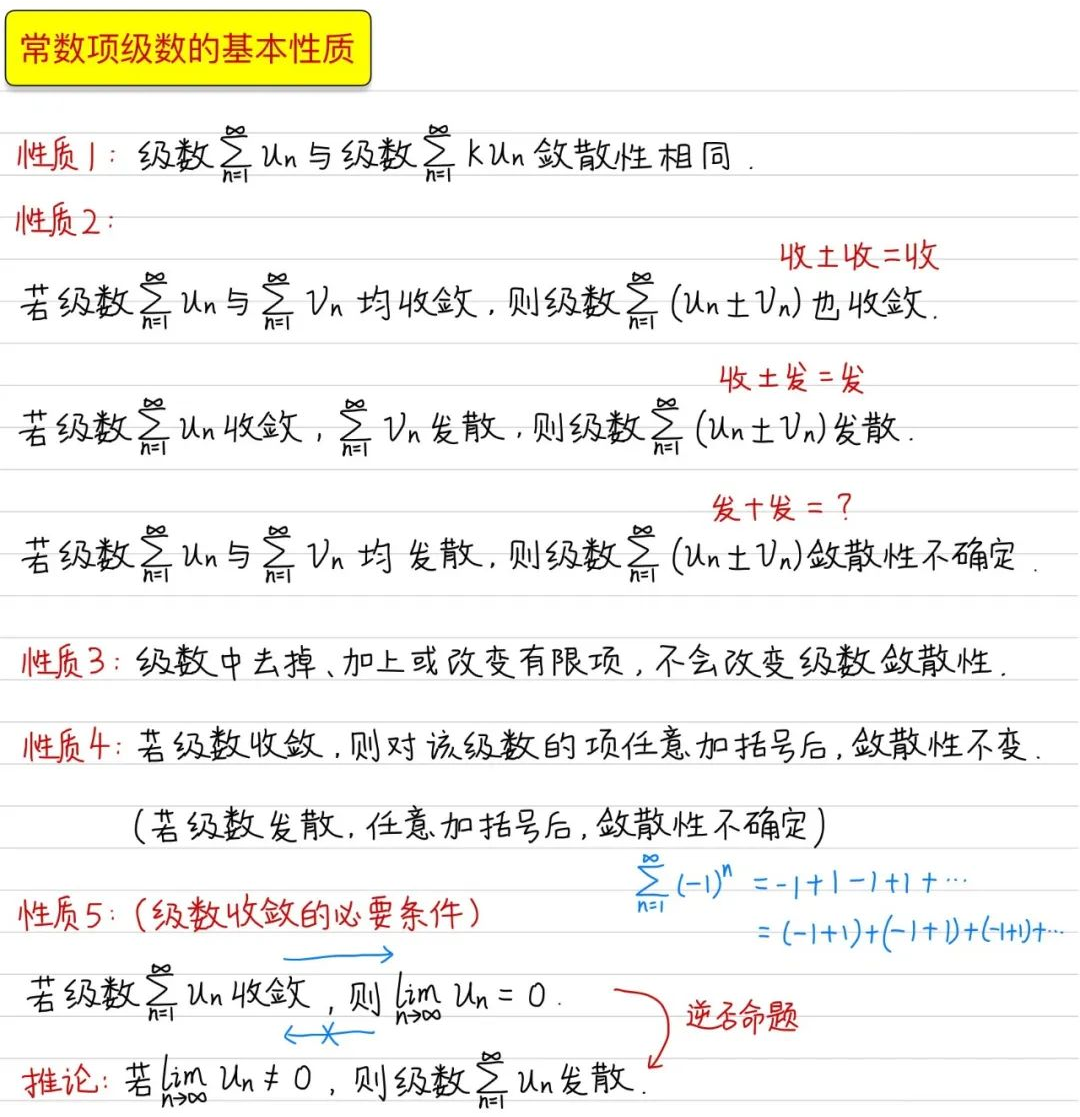 常数项级数的基本性质
性质1: 级数 ∑_{n=1}^{∞} u_n 与级数 ∑_{n=1}^{∞} k u_n 敛散性相同.
性质2:
收±收=收
若级数 ∑_{n=1}^{∞} u_n 与 ∑_{n=1}^{∞} v_n 均收敛, 则级数 ∑_{n=1}^{∞} (u_n ± v_n) 也收敛.
收±发=发
若级数 ∑_{n=1}^{∞} u_n 收敛, ∑_{n=1}^{∞} v_n 发散, 则级数 ∑_{n=1}^{∞} (u_n ± v_n) 发散.
发+发=?
若级数 ∑_{n=1}^{∞} u_n 与 ∑_{n=1}^{∞} v_n 均发散, 则级数 ∑_{n=1}^{∞} (u_n ± v_n) 敛散性不确定.
性质3: 级数中去掉、加上或改变有限项, 不会改变级数敛散性.
性质4: 若级数收敛, 则对该级数的项任意加括号后, 敛散性不变.
(若级数发散, 任意加括号后, 敛散性不确定)
∑_{n=1}^{∞} (-1)^n = -1+1-1+1+…
= (-1+1)+(-1+1)+(-1+1)+…
性质5: (级数收敛的必要条件)
若级数 ∑_{n=1}^{∞} u_n 收敛, 则 lim_{n→∞} u_n = 0.
逆否命题
推论: 若 lim_{n→∞} u_n ≠ 0, 则级数 ∑_{n=1}^{∞} u_n 发散.